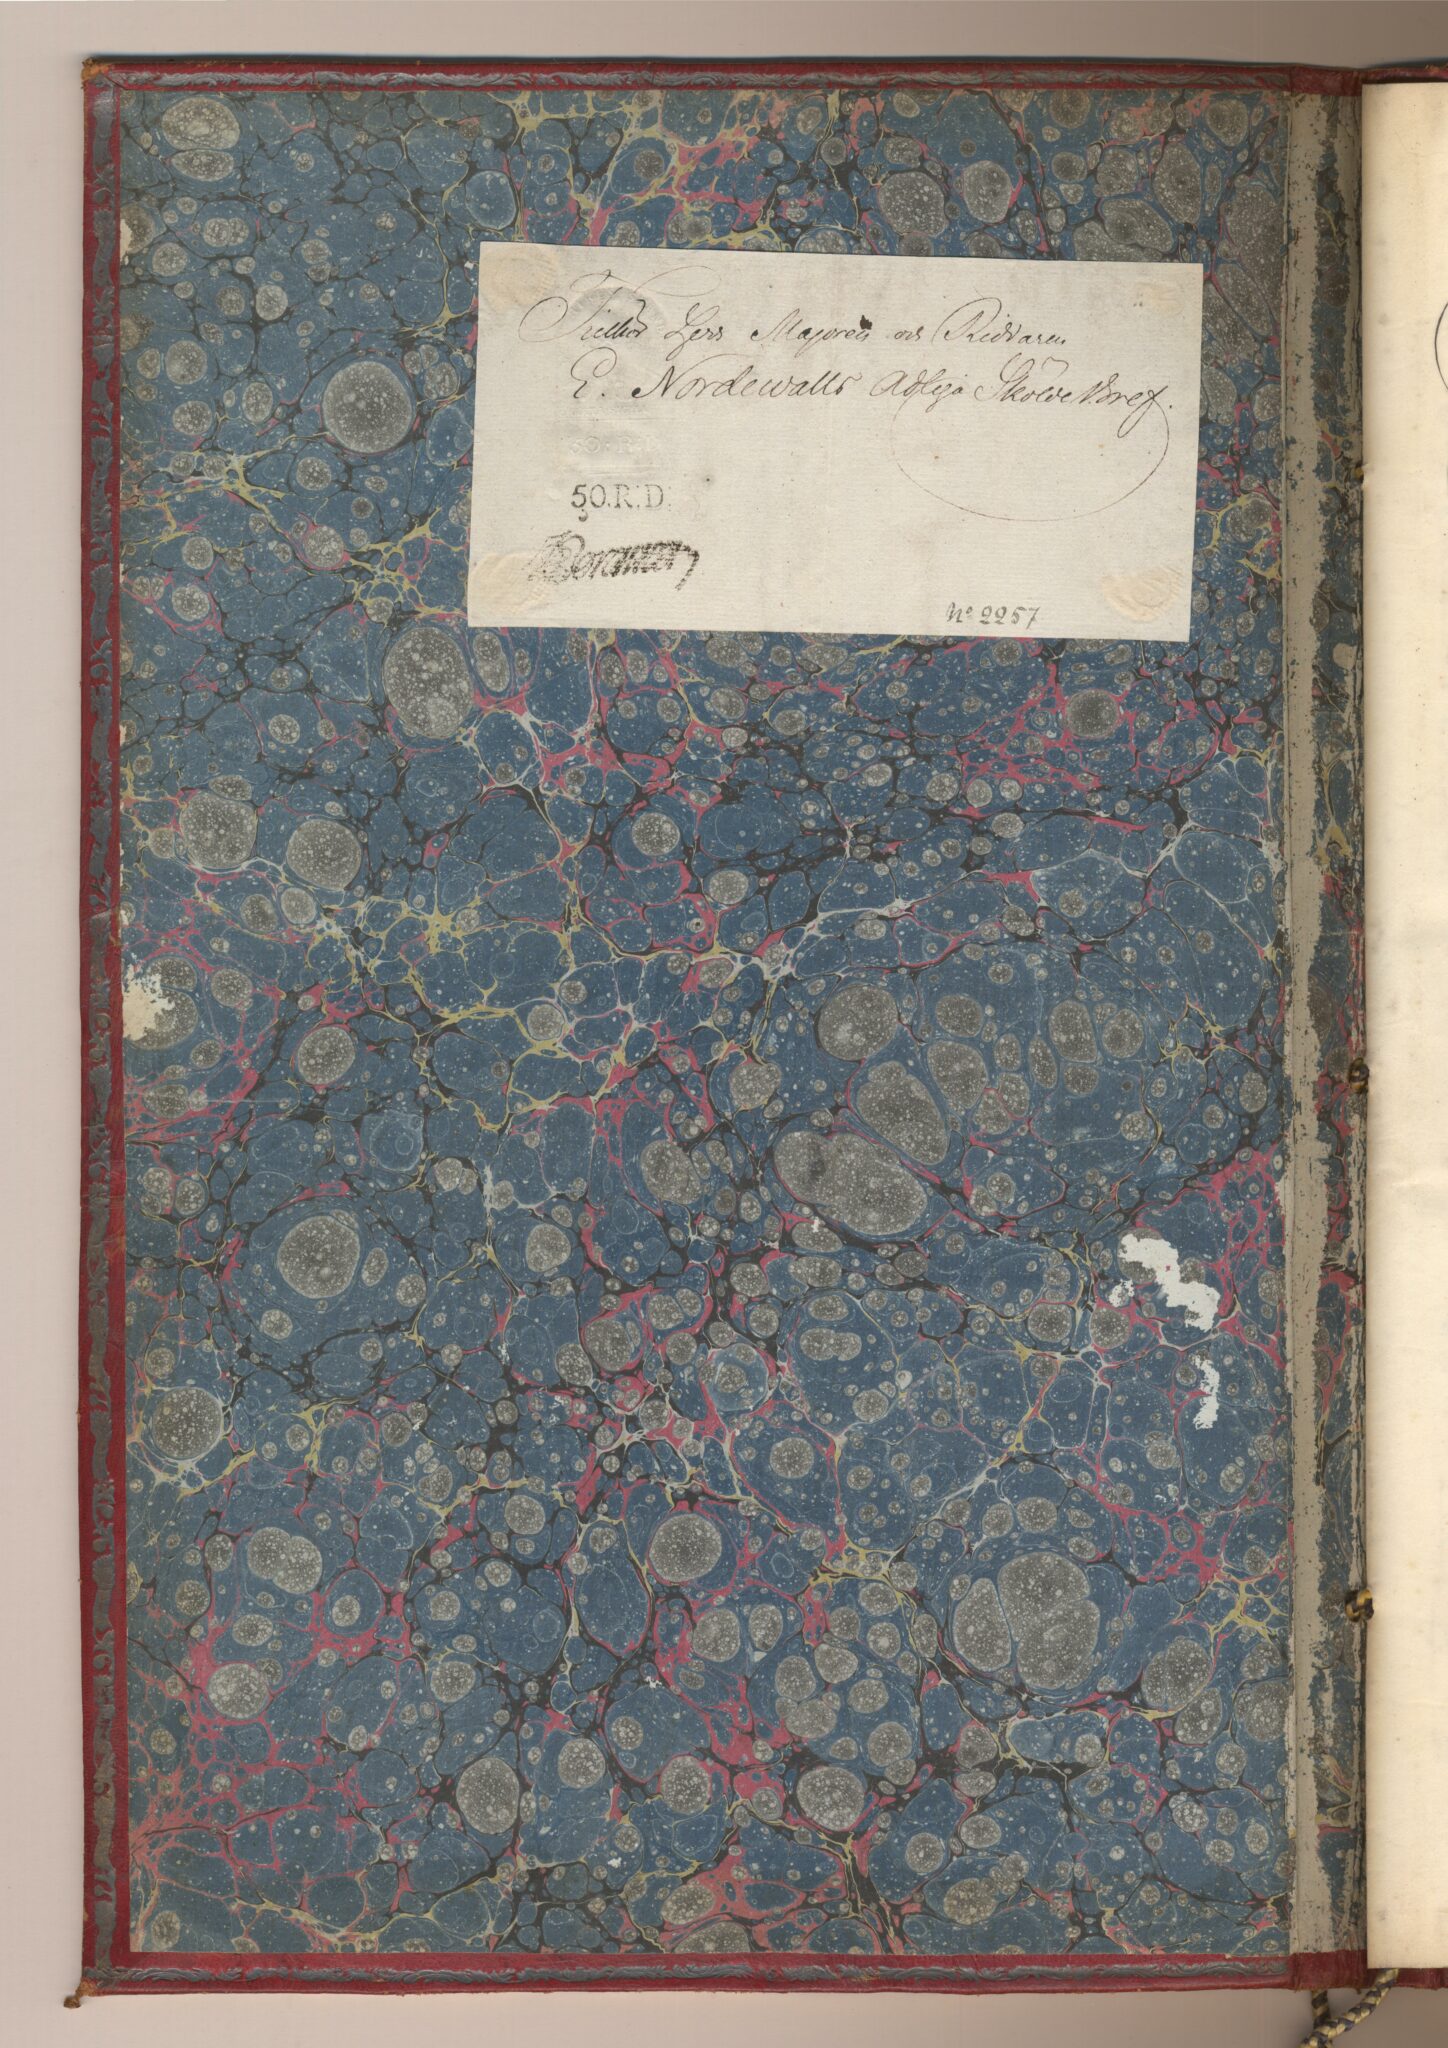 Til Herr Majoren och Riddaren
E. Nordewalls Adliga Sköldebref.
50. R.D.
50. R.D.
Nº 2257